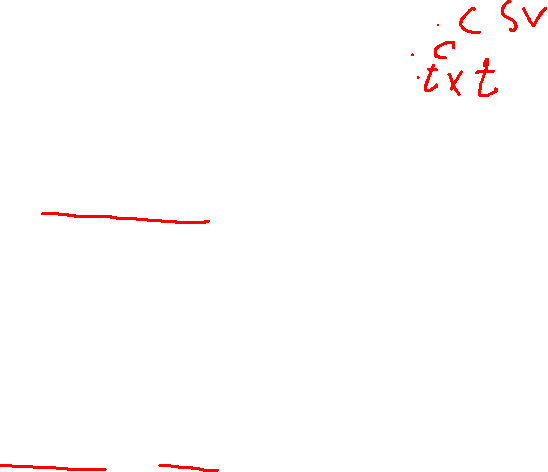 .csv
.c
.txt